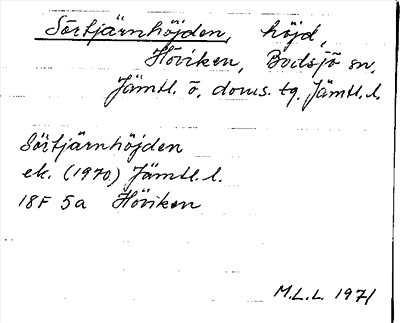 Sörtjärnhöjden, höjd,
Höviken, Bodsjö sn,
Jämtl. ö. doms. tg, Jämtl. l.
Sörtjärnhöjden
ek. (1970) Jämtl. l.
18F 5a Höviken
M.L.L. 1971